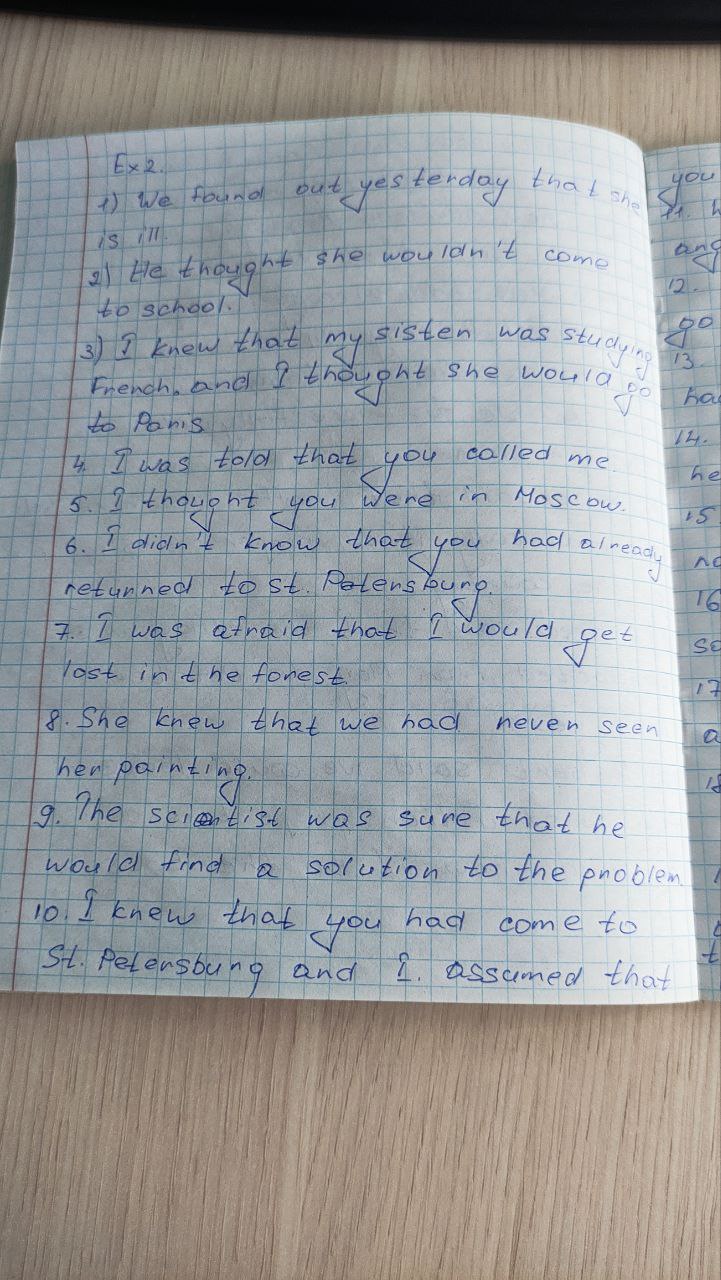 Ex 2.
1) We found out yesterday that she
is ill.
2) He thought she wouldn't come
to school.
3) I knew that my sister was studying
French, and I thought she would go
to Paris
4. I was told that you called me.
5. I thought you were in Moscow.
6. I didn't know that you had already
returned to St. Petersburg.
7. I was afraid that I would get
lost in the forest.
8. She knew that we had never seen
her painting.
9. The scientist was sure that he
would find a solution to the problem.
10. I knew that you had come to
St. Petersburg and I. assumed that
you
11.
ang
12.
go
13.
ha
14.
he
15
no
16
so
17
a
18
t